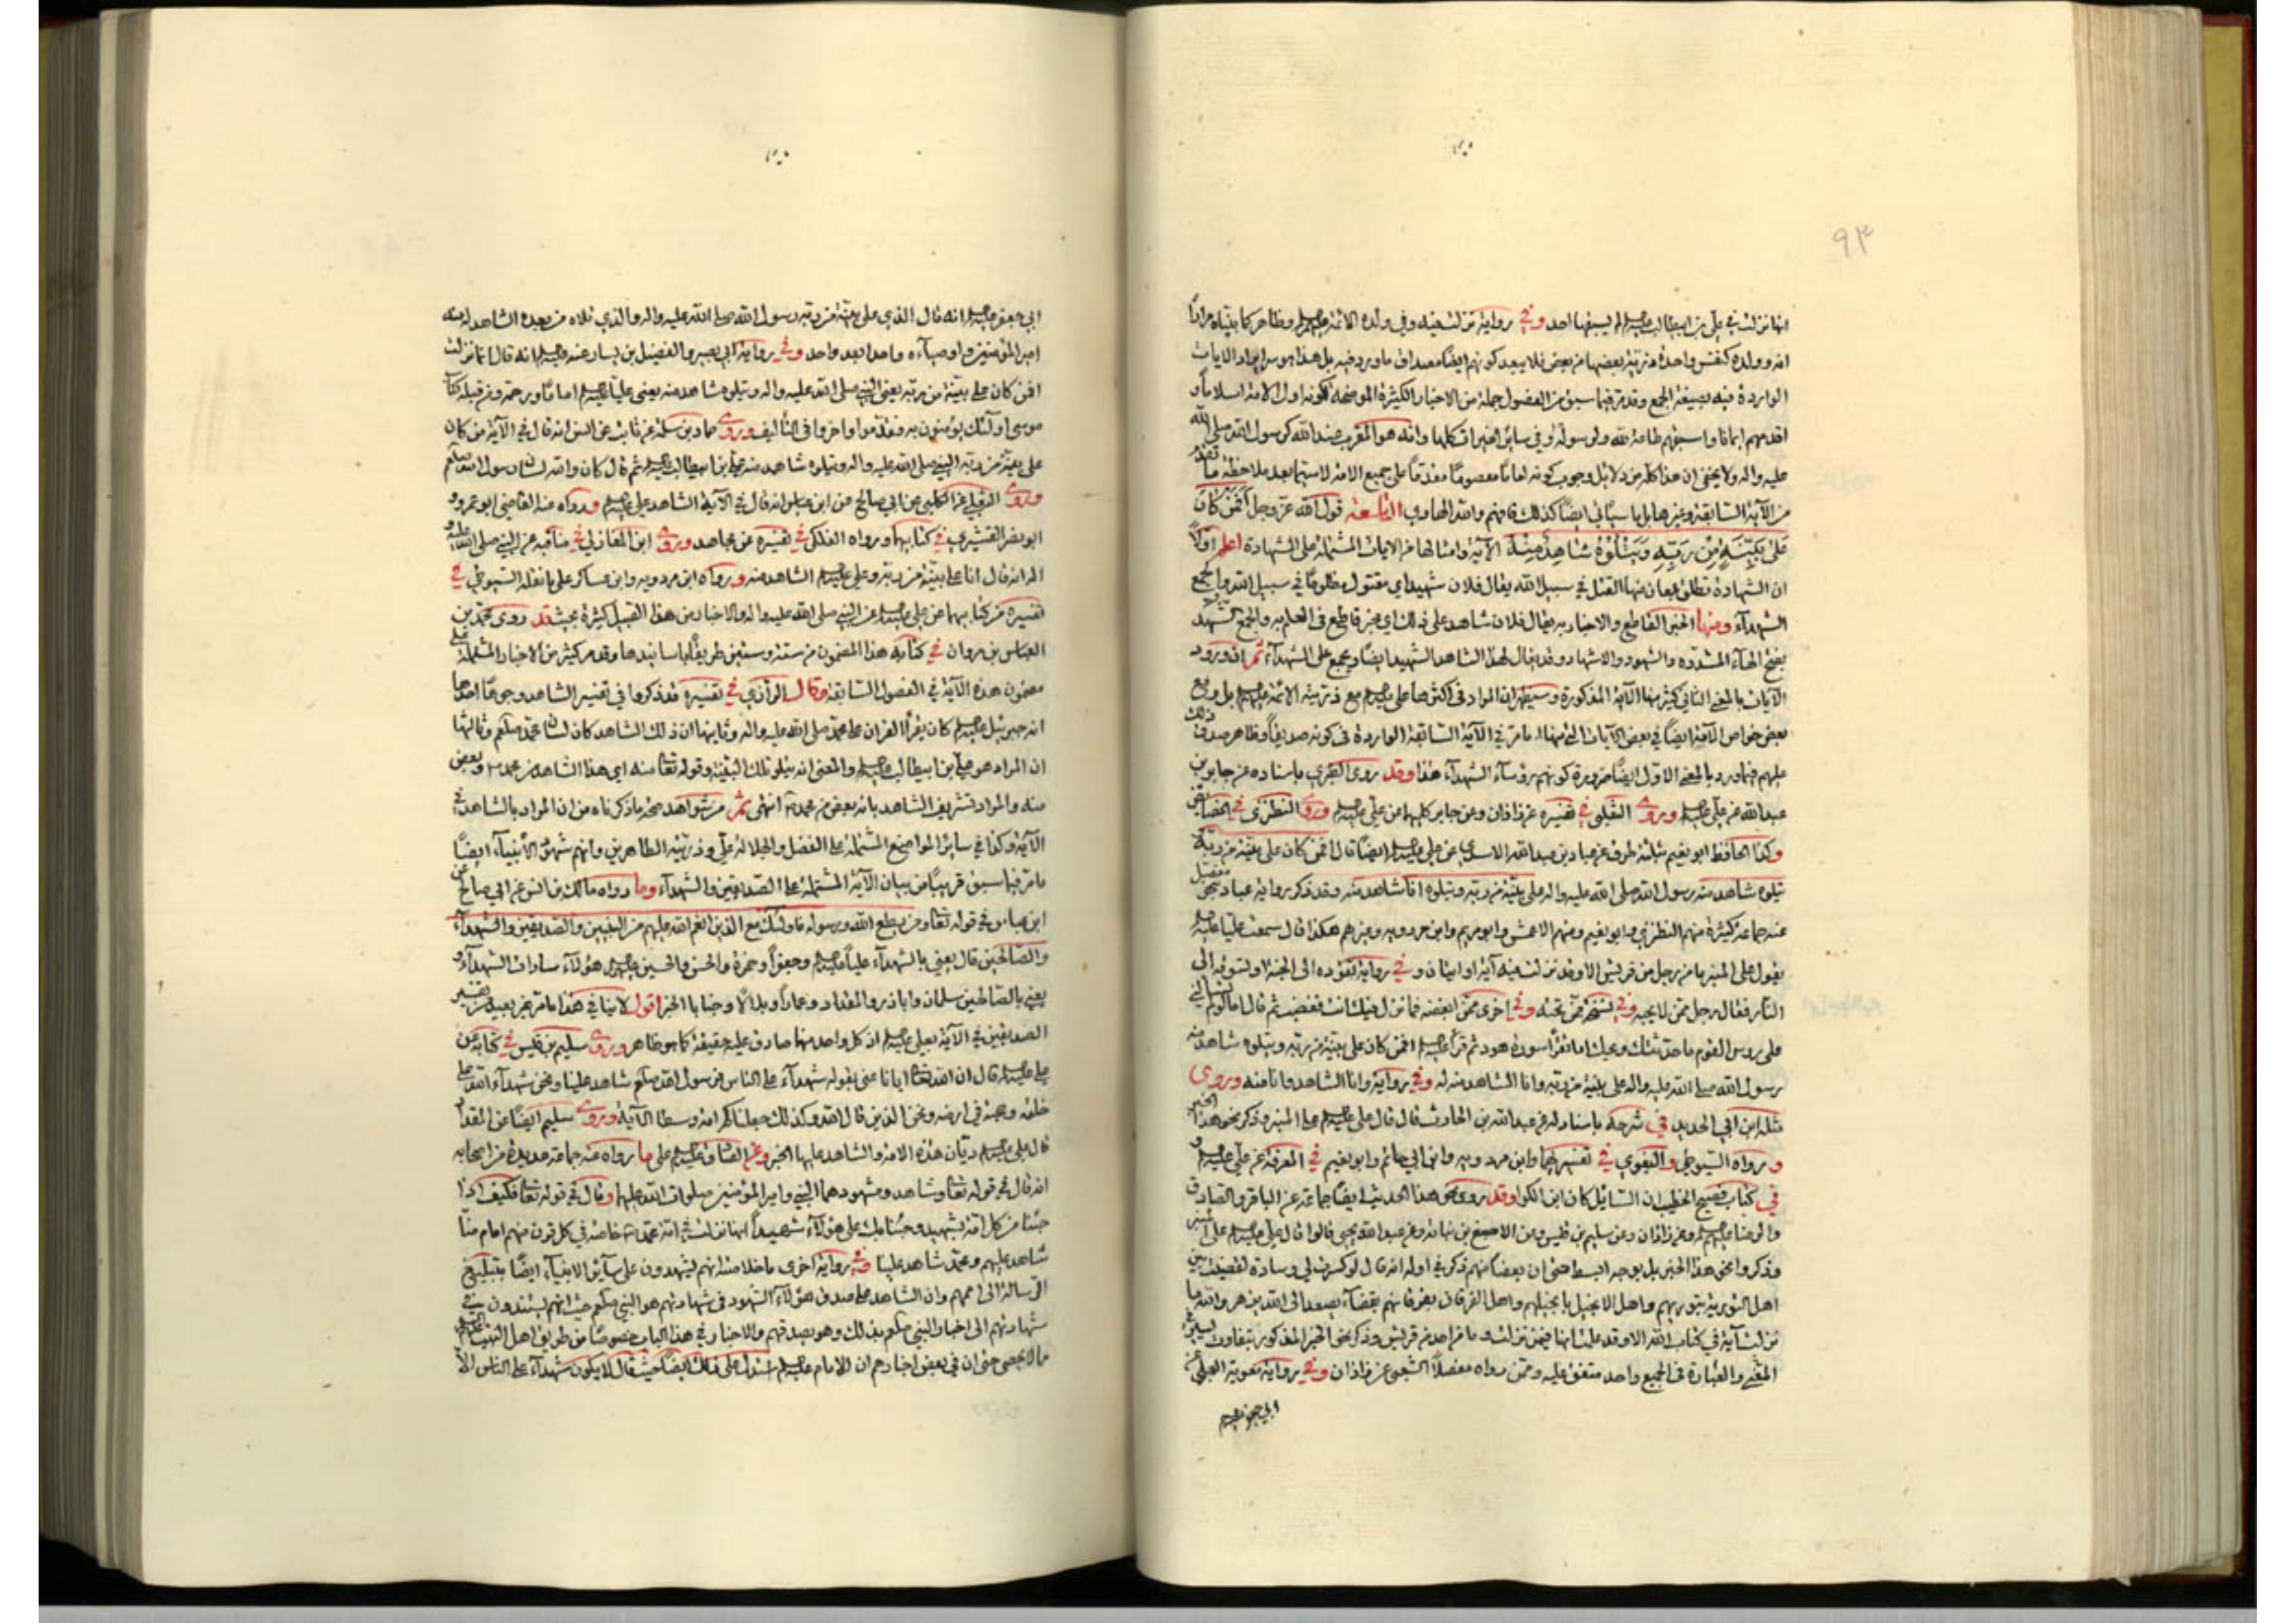 ٩٣
انها نزلت في علي بن ابيطالب عليه السلم لم يسبقها احد وفي رواية نزلت فيه وفي ولده الائمة عليهم السلم وظاهر كما بيناه مرارا
انه وولده كنفس واحدة ذرية بعضها من بعض فلا يبعد كونهم ايضا مصداق ما ورد فيه بل هذا هو سر ايراد الايات
الواردة فيه بصيغة الجمع وقد مر فيما سبق من الفصول جملة من الاخبار الكثيرة الموضحة لكونه اول الامة اسلاما و
اقدمهم ايمانا واسبقهم طاعة لله ولرسوله وفي سائر الخيرات كلها وانه هو المقرب عند الله كرسول الله صلى الله
عليه واله ولا يخفى ان هذا كله من دلائل وجوب كونه اماما معصوما مقدما على جميع الامة لاسيما بعد ملاحظة ما تقدم
من الآية السابقة وغيرها بل ما سيأتي ايضا كذلك فافهم والله الهادي التاسعة قول الله عز وجل أفمن كان
على بينة من ربه ويتلوه شاهد منه الآية وامثالها من الايات المشتملة على الشهادة اعلم اولا
ان الشهادة تطلق لمعان منها القتل في سبيل الله يقال فلان شهيد اي مقتول مظلوما في سبيل الله والجمع
الشهداء ومنها الخبر القاطع والاخبار به يقال فلان شاهد على ذلك اي مخبر قاطع في العلم به والجمع الشهد
بفتح الهاء المشددة والشهود والاشهاد وقد يقال لهذا الشاهد الشهيد ايضا ويجمع على الشهداء ثم ان ورود
الآيات بالمعنى الثاني كثير منها الآية المذكورة وسيظهر ان المراد في اكثرها علي عليه السلم مع ذريته الائمة عليهم السلم بل ومع
بعض خواص الامة ايضا في بعض الآيات التي منها ما مر في الآية السابقة الواردة في كونه صديقا وظاهر صدق ذلك
عليهم فيما ورد بالمعنى الاول ايضا ضرورة كونهم رؤساء الشهداء هذا وقد روى الطبري باسناده عن جابر بن
عبدالله عن علي عليه السلم وروى الثعلبي في تفسيره عن زاذان وعن جابر كليهما عن علي عليه السلم وروى النطنزي في الخصائص
وكذا الحافظ ابو نعيم بثلثة طرق عن عباد بن عبدالله الاسدي عن علي عليه السلم ايضا قال افمن كان على بينة من ربه و
يتلوه شاهد منه رسول الله صلى الله عليه واله على بينة من ربه ويتلوه انا شاهد منه وقد ذكر رواية عباد بنحو مفصل
عنه جماعة كثيرة منهم النطنزي وابو نعيم ومنهم الاعمش وابو مريم وابن مردويه وغيرهم هكذا قال سمعت عليا عليه السلم
يقول على المنبر ما من رجل من قريش الا وقد نزلت فيه آية او ايتان وفي رواية تقوده الى الجنة او تسوقه الى
النار فقال رجل ممن لا يحبه وفي نسخة ممن تحته وفي اخرى ممن ابغضه فما نزل فيك انت فغضب ثم قال اما لو لم تسألني
على روس القوم ما حدثتك ويحك اما تقرأ سورة هود ثم قرأ عليه السلم افمن كان على بينة من ربه ويتلوه شاهد منه
رسول الله صلى الله عليه واله على بينة من ربه وانا الشاهد منه له وفي رواية وانا الشاهد وانا منه وروى
مثله ابن ابي الحديد في شرحه باسناد له عن عبدالله بن الحارث قال قال علي عليه السلم على المنبر وذكر نحو هذا الخبر
ورواه السيوطي والبغوي في تفسيرهما وابن مردويه وابن ابي حاتم وابو نعيم في المعرفة عن علي عليه السلم و
في كتاب فصيح الخطيب ان السائل كان ابن الكوا وقد روى نحو هذا الحديث ايضا جماعة عن الباقر والصادق
والرضا عليهم السلم وعن زاذان وعن سليم بن قيس وعن الاصبغ بن نباتة وعن عبدالله بن يحيى قالوا قال علي عليه السلم على المنبر
وذكروا نحو هذا الخبر بل بوجه ابسط حتى ان بعضا منهم ذكر في اوله انه قال لو كسرت لي وسادة لقضيت بين
اهل التورية بتوريتهم واهل الانجيل بانجيلهم واهل الفرقان بفرقانهم بقضاء يصعد الى الله يزهر والله ما
نزلت آية في كتاب الله الا وقد علمت انها فيمن نزلت وما من احد من قريش وذكر نحو الخبر المذكور بتفاوت يسير في
المعنى والعبارة في الجميع واحد متفق عليه وممن رواه مفصلا الشعبي عن زاذان وفي رواية معوية العجلي عن
ابي جعفر عليه السلم
ابي جعفر عليه السلم انه قال الذي على بينة من ربه رسول الله صلى الله عليه واله والذي تلاه من بعده الشاهد له منه
امير المؤمنين و اوصياءه واحدا بعد واحد وفي رواية ابي بصير والفضيل بن يسار عنه عليه السلم انه قال انما نزلت
افمن كان على بينة من ربه يعني النبي صلى الله عليه واله ويتلوه شاهد منه يعني عليا عليه السلم اماما ورحمة ومن قبله كتاب
موسى اولئك يؤمنون به فقدموا واخروا في التأليف وروى حماد بن سلمة عن ثابت عن انس انه قال في الآية من كان
على بينة من ربه النبي صلى الله عليه واله ويتلوه شاهد منه علي بن ابيطالب عليه السلم ثم قال كان والله لسان رسول الله صلعم
وروى الثعلبي عن الكلبي عن ابي صالح عن ابن عباس انه قال في الآية الشاهد علي عليه السلم ورواه عنه القاضي ابو عمرو و
ابو نصر القشيري في كتابيهما ورواه الفلكي في تفسيره عن مجاهد وروى ابن المغازلي في مناقبه عن النبي صلى الله عليه و
اله انه قال انا على بينة من ربه وعلي عليه السلم الشاهد منه ورواه ابن مردويه وابن عساكر على ما نقله السيوطي في
تفسيره من كتابيهما عن علي عليه السلم عن النبي صلى الله عليه واله والاخبار من هذا القبيل كثيرة بحيث قد روى محمد بن
العباس بن مروان في كتابه هذا المضمون من ستة وستين طريقا باسانيدها وقد مر كثير من الاخبار المشتملة على
مضمون هذه الآية في الفصول السابقة وقال الرازي في تفسيره قد ذكروا في تفسير الشاهد وجوها احدها
انه جبرئيل عليه السلم كان يقرأ القران على محمد صلى الله عليه واله وثانيها ان ذلك الشاهد كان لسان محمد صلعم وثالثها
ان المراد هو علي بن ابيطالب عليه السلم والمعنى انه يتلو تلك البينة وقوله تعا منه اي هذا الشاهد من محمد وبعض
منه والمراد تشريف الشاهد بانه بعض من محمد انتهى ثم من شواهد صحة ما ذكرناه من ان المراد بالشاهد في
الآية وكذا في سائر المواضع المشتملة على الفضل والجلالة علي وذريته الطاهرين وانهم شهود الأنبياء ايضا
ما مر فيما سبق قريبا من بيان الآية المشتملة على الصديقين والشهداء وما رواه مالك بن انس عن ابي صالح عن
ابن عباس في قوله تعا ومن يطع الله ورسوله فاولئك مع الذين انعم الله عليهم من النبيين والصديقين والشهداء
والصالحين قال يعني بالشهداء عليا عليه السلم وجعفرا وحمزة والحسن والحسين عليهم السلم هؤلاء سادات الشهداء و
يعني بالصالحين سلمان واباذر والمقداد وعمارا وبلالا وخبابا الخبر اقول لا ينافي هذا ما مر من تفسير
الصديقين في الآية بعلي عليه السلم اذ كل واحد منهما صادق عليه حقيقة كما هو ظاهر وروى سليم بن قيس في كتابه عن
علي عليه السلم قال ان الله تعا ايانا عنى بقوله شهداء على الناس فرسول الله صلعم شاهد علينا ونحن شهداء الله على
خلقه وحجته في ارضه ونحن الذين قال الله وكذلك جعلناكم امة وسطا الآية وروى سليم ايضا عن المقداد
قال علي عليه السلم ديان هذه الامة والشاهد عليها الخبر وعن الصادق عليه السلم على ما رواه عنه جماعة عديدة من اصحابه
انه قال في قوله تعا وشاهد ومشهود هما النبي وامير المؤمنين صلوات الله عليهما وقال في قوله تعا فكيف اذا
جئنا من كل امة بشهيد وجئنا بك على هؤلاء شهيدا انها نزلت في امة محمد خاصة في كل قرن منهم امام منا
شاهد عليهم ومحمد شاهد علينا وفي رواية اخرى ما خلاصته انهم يشهدون على سائر الانبياء ايضا بتبليغ
الرسالة الى اممهم وان الشاهد على صدق هؤلاء الشهود في شهادتهم هو النبي صلعم حيث انهم يستندون في
شهادتهم الى اخبار النبي صلعم بذلك وهو يصدقهم والاخبار في هذا الباب خصوصا من طريق اهل البيت عليهم السلم
ما لا يحصى حتى ان في بعض اخبارهم ان الامام عليه السلم استدل على ذلك ايضا حيث قال لا يكون شهداء على الناس الا